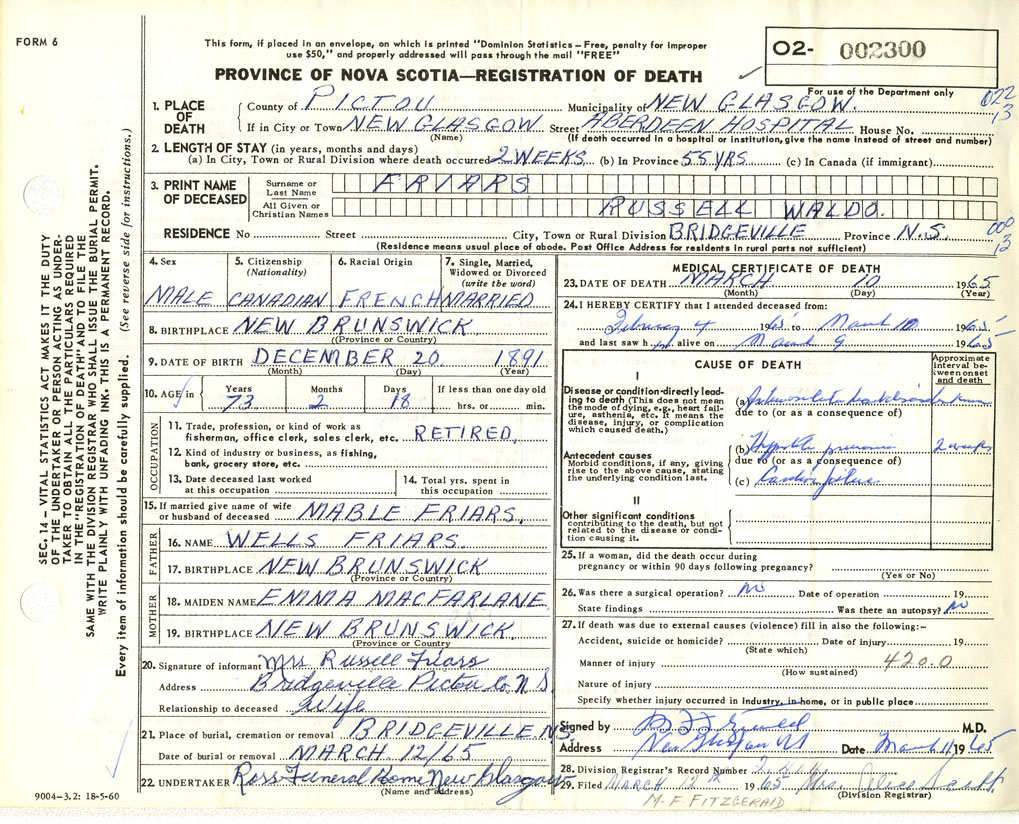 FORM 6
This form, if placed in an envelope, on which is printed "Dominion Statistics – Free, penalty for improper
use $50," and properly addressed will pass through the mail "FREE"
PROVINCE OF NOVA SCOTIA—REGISTRATION OF DEATH
02- 002300
For use of the Department only
022
13
1. PLACE OF DEATH
County of PICTOU Municipality of NEW GLASGOW.
If in City or Town NEW GLASGOW Street ABERDEEN HOSPITAL House No.
(Name) (If death occurred in a hospital or institution, give the name instead of street and number)
2. LENGTH OF STAY (in years, months and days)
(a) In City, Town or Rural Division where death occurred 2 WEEKS (b) In Province 55 YRS (c) In Canada (if immigrant)
3. PRINT NAME OF DECEASED
Surname or Last Name FRIARS
All Given or Christian Names RUSSELL WALDO.
RESIDENCE No Street City, Town or Rural Division BRIDGEVILLE Province N.S.
000
13
(Residence means usual place of abode. Post Office Address for residents in rural parts not sufficient)
4. Sex 5. Citizenship (Nationality) 6. Racial Origin 7. Single, Married, Widowed or Divorced (write the word)
MALE CANADIAN FRENCH MARRIED
8. BIRTHPLACE NEW BRUNSWICK
(Province or Country)
9. DATE OF BIRTH DECEMBER 20 1891
(Month) (Day) (Year)
10. AGE in Years 73 Months 2 Days 18 If less than one day old hrs. or min.
OCCUPATION
11. Trade, profession, or kind of work as fisherman, office clerk, sales clerk, etc. RETIRED,
12. Kind of industry or business, as fishing, bank, grocery store, etc.
13. Date deceased last worked at this occupation
14. Total yrs. spent in this occupation
15. If married give name of wife or husband of deceased MABLE FRIARS.
FATHER
16. NAME WELLS FRIARS.
17. BIRTHPLACE NEW BRUNSWICK
(Province or Country)
MOTHER
18. MAIDEN NAME EMMA MACFARLANE
19. BIRTHPLACE NEW BRUNSWICK.
(Province or Country
20. Signature of informant Mrs Russell Friars
Address Bridgeville Pictou Co N.S.
Relationship to deceased Wife
21. Place of burial, cremation or removal BRIDGEVILLE N.S.
Date of burial or removal MARCH 12/65
22. UNDERTAKER Ross Funeral Home New Glasgow
(Name and address)
MEDICAL CERTIFICATE OF DEATH
23. DATE OF DEATH MARCH 10 1965
(Month) (Day) (Year)
24. I HEREBY CERTIFY that I attended deceased from:
February 4 1965 to March 10 1965
and last saw him alive on March 9 1965
CAUSE OF DEATH
Approximate interval between onset and death
I
Disease or condition directly leading to death (This does not mean the mode of dying, e.g., heart failure, asthenia, etc. It means the disease, injury, or complication which caused death.)
(a)
due to (or as a consequence of)
Antecedent causes
Morbid conditions, if any, giving rise to the above cause, stating the underlying condition last.
(b) 2 weeks
due to (or as a consequence of)
(c)
II
Other significant conditions contributing to the death, but not related to the disease or condition causing it.
25. If a woman, did the death occur during pregnancy or within 90 days following pregnancy?
(Yes or No)
26. Was there a surgical operation? No Date of operation 19
State findings Was there an autopsy? No
27. If death was due to external causes (violence) fill in also the following:–
Accident, suicide or homicide? Date of injury 19
(State which)
Manner of injury 420.0
(How sustained)
Nature of injury
Specify whether injury occurred in industry, in home, or in public place
Signed by M.D.
Address New Glasgow NS Date March 11 1965
28. Division Registrar's Record Number
29. Filed MARCH 12th 1965 Mrs. Alice
(Division Registrar)
M. F. FITZGERALD
SEC. 14 – VITAL STATISTICS ACT MAKES IT THE DUTY
OF THE UNDERTAKER OR PERSON ACTING AS UNDER-
TAKER TO OBTAIN ALL THE PARTICULARS REQUIRED
IN THE "REGISTRATION OF DEATH" AND TO FILE THE
SAME WITH THE DIVISION REGISTRAR WHO SHALL ISSUE THE BURIAL PERMIT.
WRITE PLAINLY WITH UNFADING INK. THIS IS A PERMANENT RECORD.
Every item of information should be carefully supplied. (See reverse side for instructions.)
9004-3.2: 18-5-60